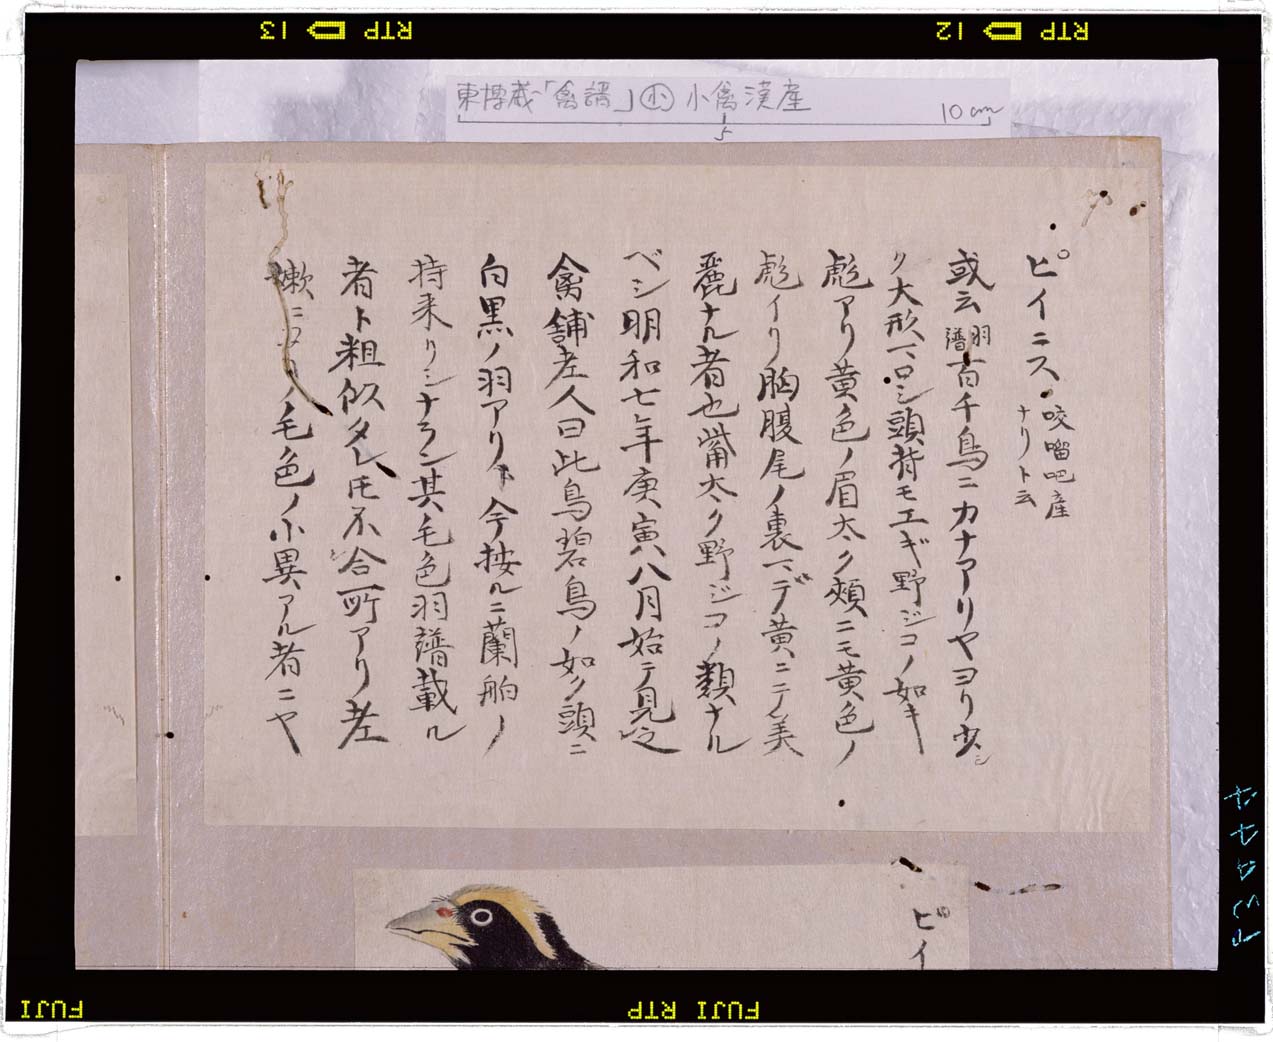 RTP 12
RTP 13
東博蔵「禽譜」㋭ 小禽漢産
5
10cm
ピイニス 咬𠺕吧産
ナリト云
或云 羽譜 百千鳥ニカナアリヤヨリ少シ
ク大形マロシ頭背モエギ野ジコノ如キ
彪アリ黄色ノ眉太ク頬ニモ黄色ノ
彪イリ胸腹尾ノ裏マデ黄ニテ美
麗ナル者也觜太ク野ジコノ類ナル
ベシ明和七年庚寅八月始テ見之
禽舗老人曰此鳥碧鳥ノ如ク頭ニ
白黒ノ羽アリト今按ルニ蘭舶ノ
持来リシナラン其毛色羽譜載ル
者ト粗似タレ𪜈不合所アリ老
嫩ニヨリノ毛色ノ小異アル者ニヤ
ピイ
FUJI
FUJI RTP